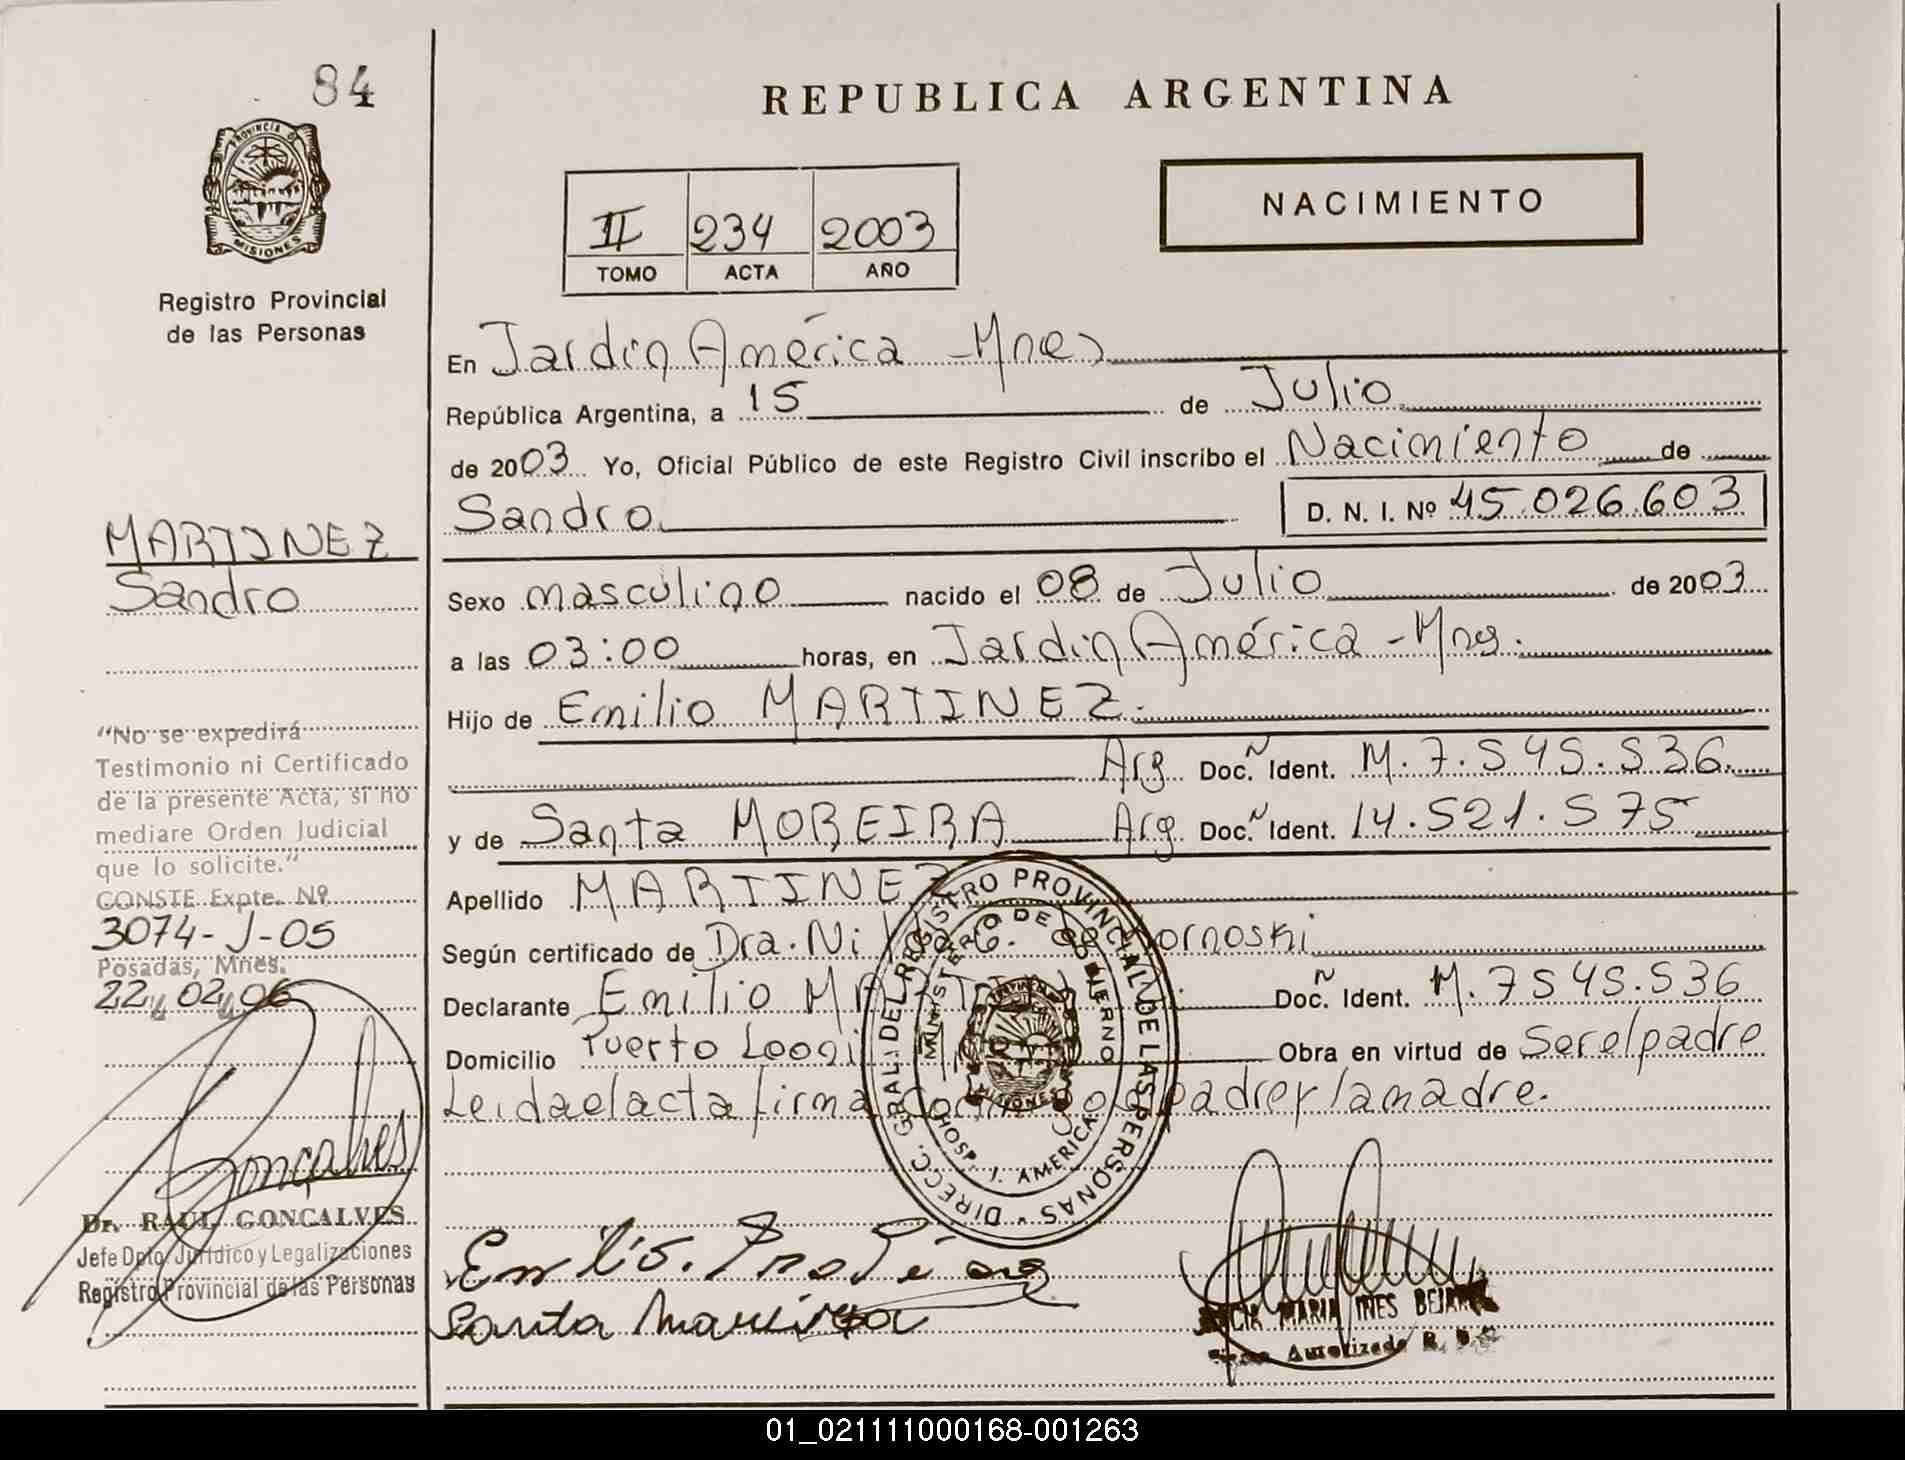 84
PROVINCIA DE
MISIONES
Registro Provincial
de las Personas
MARTINEZ
Sandro
"No se expedirá
Testimonio ni Certificado
de la presente Acta, si no
mediare Orden Judicial
que lo solicite."
CONSTE Expte. Nº
3074-J-05
Posadas, Mnes.
22, 02, 06
Goncalves
Dr. RAUL GONCALVES
Jefe Dpto. Jurídico y Legalizaciones
Registro Provincial de las Personas
REPUBLICA ARGENTINA
NACIMIENTO
II 234 2003
TOMO ACTA AÑO
En Jardin América - Mnes
República Argentina, a 15 de Julio
de 2003 Yo, Oficial Público de este Registro Civil inscribo el Nacimiento de
Sandro D. N. I. Nº 45.026.603
Sexo masculino nacido el 08 de Julio de 2003
a las 03:00 horas, en Jardin América - Mnes.
Hijo de Emilio MARTINEZ.
Arg Doc. Ident. M. 7.545.536.
y de Santa MOREIRA Arg Doc. Ident. 14.521.575
Apellido MARTINEZ
Según certificado de Dra.
Declarante Emilio Doc. Ident. M. 7545.536
Domicilio Puerto Obra en virtud de ser el padre
Leida el acta firma padre y la madre.
DIRECC. GRAL. DEL REGISTRO PROVINCIAL DE LAS PERSONAS
MINISTERIO DE GOBIERNO
HOSP. J. AMERICA
MISIONES
Emilio.
Santa
MARIA INES
Autorizada
01_021111000168-001263